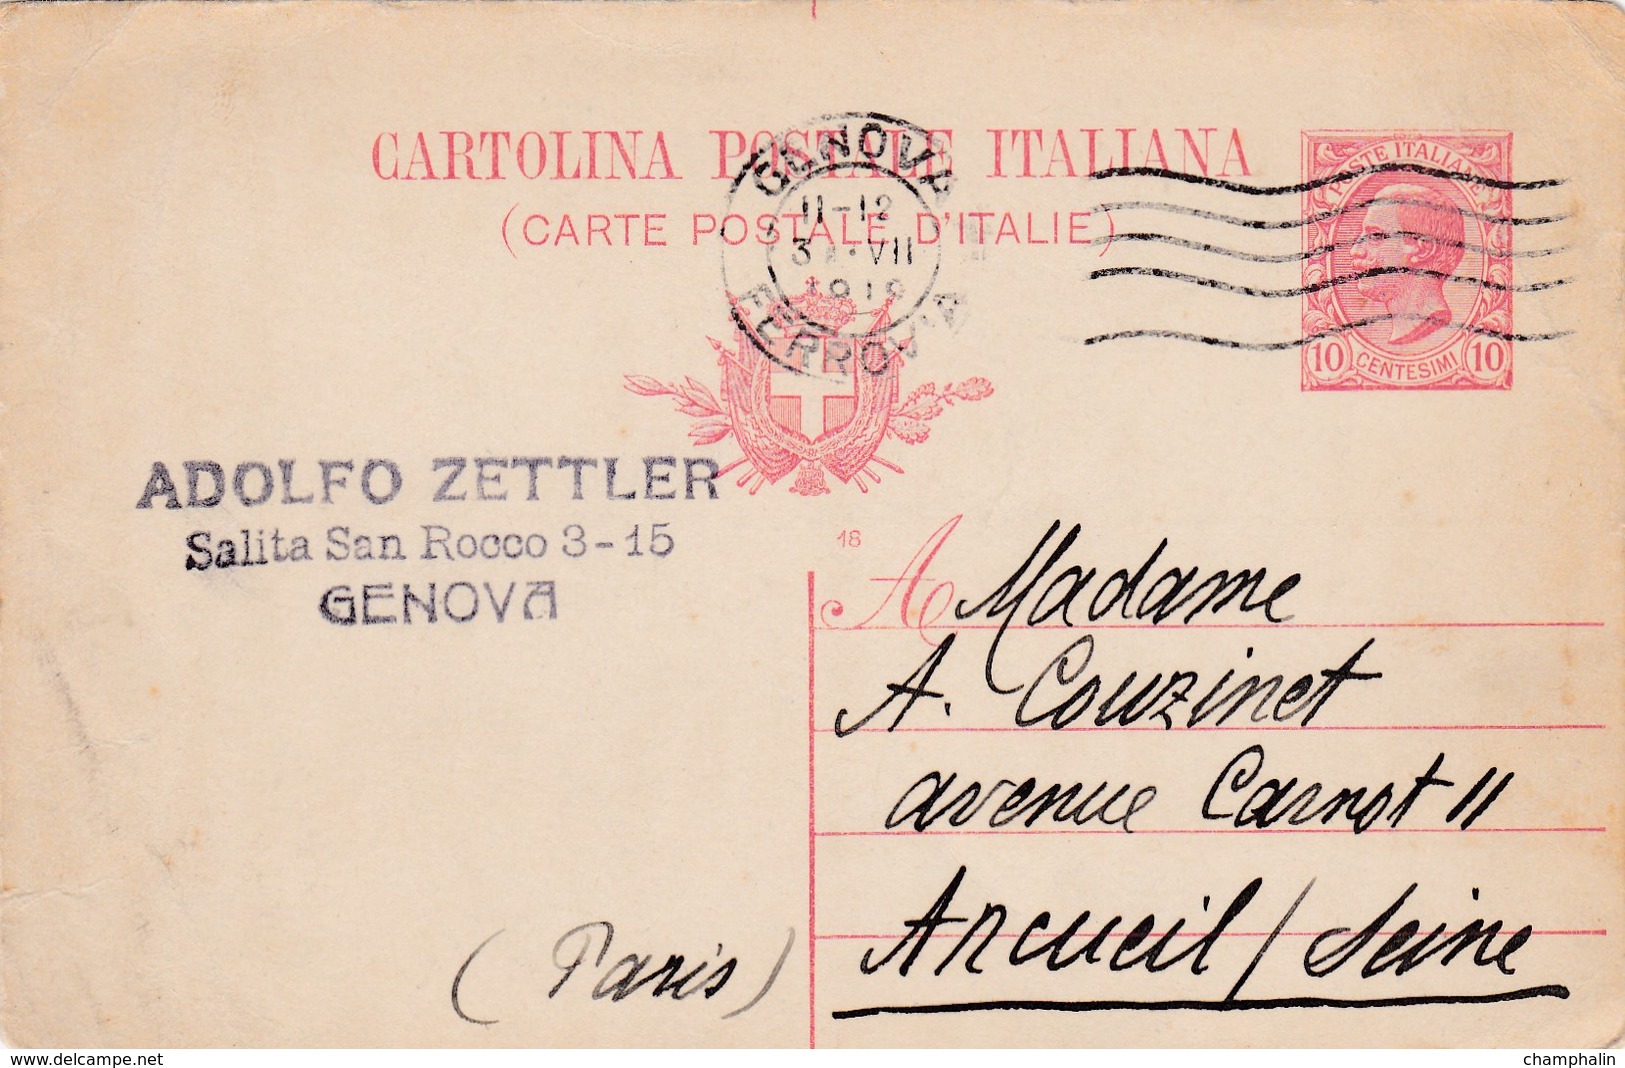 CARTOLINA POSTALE ITALIANA
(CARTE POSTALE D'ITALIE)
GENOVA
11-12
VII
1919
FERROVIA
POSTE ITALIANE
10 CENTESIMI 10
ADOLFO ZETTLER
Salita San Rocco 3-15
GENOVA
18
A Madame
A. Couzinet
avenue Carnot 11
Arcueil / Seine
(Paris)
www.delcampe.net
champhalin